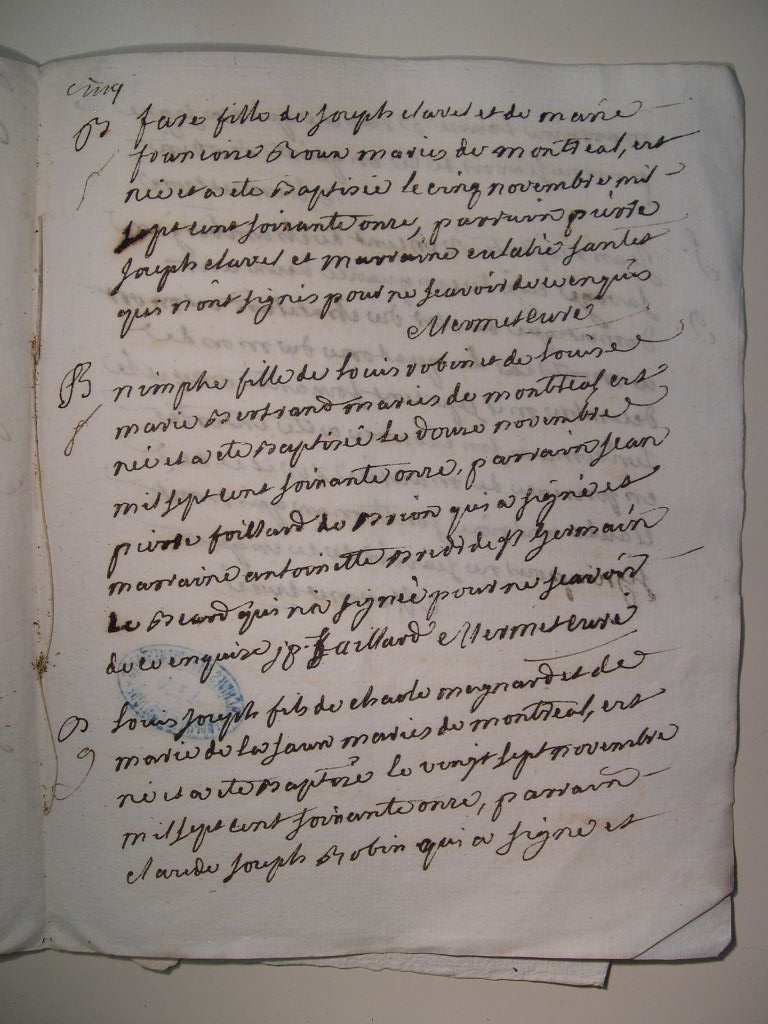 cinq
B fare fille de Joseph clavel et de marie
francoise Roux mariés de montreal, est
née et a ete Baptisée le cinq novembre mil
sept cent soixante onze, parrain pierre
Joseph clavel et marraine eulalie
qui n'ont signés pour ne scavoir de ce enquis
Mermet curé
B nimphe fille de louis robin et de louise
marie Bertrand mariés de montreal, est
née et a ete Baptisée le douze novembre
mil sept cent soixante onze, parrain Jean
pierre foillard de Brion qui a signé et
marraine antoinette de st Germain
Le qui n'a signée pour ne scavoir
de ce enquise jp. faillard Mermet curé
B Louis Joseph fils de charle magnard et de
marie de la mariés de montreal, est
né et a ete Baptisé le vingt sept novembre
mil sept cent soixante onze, parrain
claude Joseph Robin qui a signé et